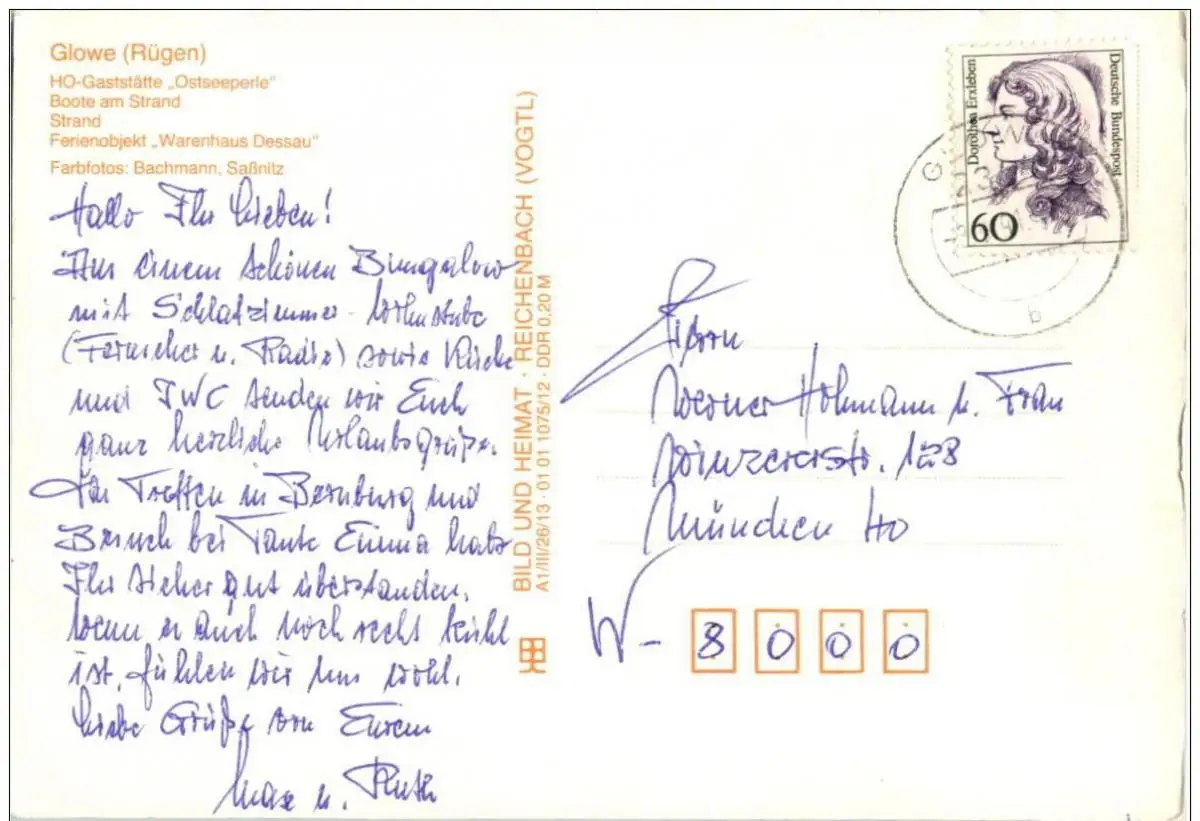 Glowe (Rügen)
HO-Gaststätte „Ostseeperle"
Boote am Strand
Strand
Ferienobjekt „Warenhaus Dessau"
Farbfotos: Bachmann, Saßnitz
Hallo Ihr Lieben!
Aus einem schönen Bungalow
mit Schlafzimmer - Wohnstube
(Fernseher u. Radio) sowie Küche
und IWC senden wir Euch
ganz herzliche Urlaubsgrüße.
Das Treffen in Bernburg und
Besuch bei Tante Emma habt
Ihr sicher gut überstanden.
Wenn es auch noch recht kühl
ist, fühlen wir uns wohl.
Liebe Grüße von Euren
Max u. Ruth
BILD UND HEIMAT · REICHENBACH (VOGTL)
A1/III/26/13 · 01 01 1075/12 · DDR 0,20 M
Dorothea Erxleben
Deutsche Bundespost
60
b
Werner Hohmann u. Frau
Winzererstr. 128
München 40
W - 8000